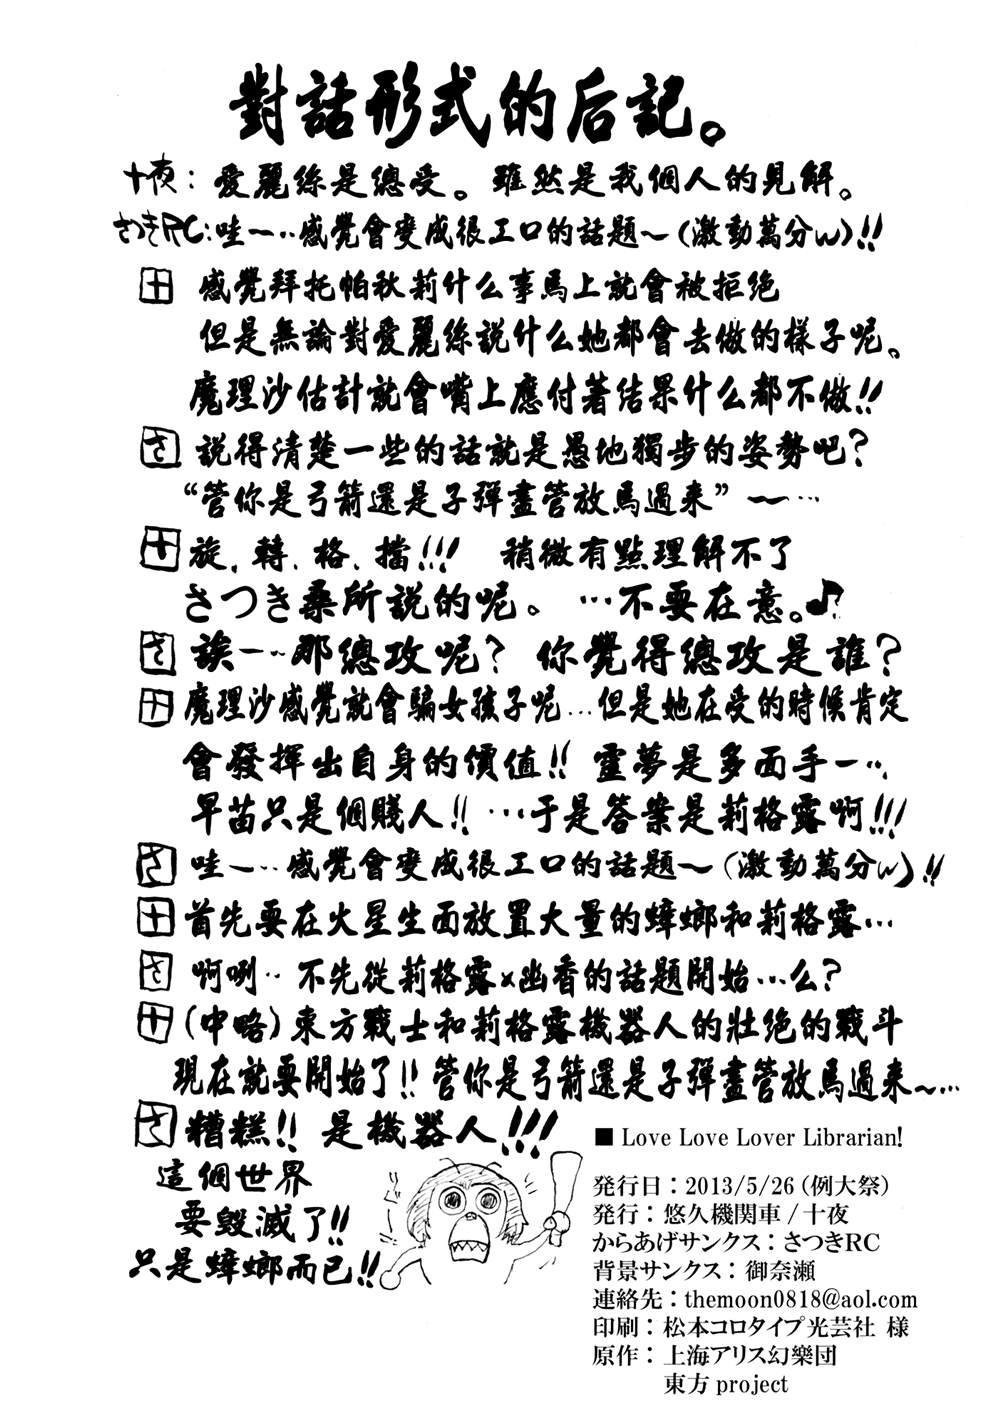 對話形式的后記。
十夜：愛麗絲是總受。雖然是我個人的見解。
さつきRC:哇一‥感覺會變成很工口的話題～(激動萬分w)!!
十 感覺拜托帕秋莉什么事馬上就會被拒絶
但是無論對愛麗絲説什么她都會去做的樣子呢。
魔理沙估計就會嘴上應付著结果什么都不做!!
さ 説得清楚一些的話就是愚地獨步的姿勢吧?
“管你是弓箭還是子彈盡管放馬過来”～…
十 旋、轉、格、擋!!! 稍微有點理解不了
さつき桑所説的呢。…不要在意。♪
さ 誒一‥那總攻呢? 你覺得總攻是誰?
十 魔理沙感覺就會騙女孩子呢…但是她在受的時候肯定
會發揮出自身的價值!! 靈夢是多面手一‥
早苗只是個賤人!! …于是答案是莉格露啊!!!
さ 哇一‥感覺會變成很工口的話題～(激動萬分w)!!
十 首先要在火星生面放置大量的蟑螂和莉格露…
さ 啊咧‥不先從莉格露×幽香的話題開始…么?
十 (中略)東方戰士和莉格露機器人的壯绝的戰斗
現在就要開始了!! 管你是弓箭還是子彈盡管放馬過来～…
さ 糟糕!! 是機器人!!!
這個世界
要毀滅了!!
只是蟑螂而已!!
■ Love Love Lover Librarian!
発行日：2013/5/26（例大祭）
発行：悠久機関車 / 十夜
からあげサンクス：さつきRC
背景サンクス：御奈瀬
連絡先：themoon0818@aol.com
印刷：松本コロタイプ光芸社 様
原作：上海アリス幻樂団
東方 project